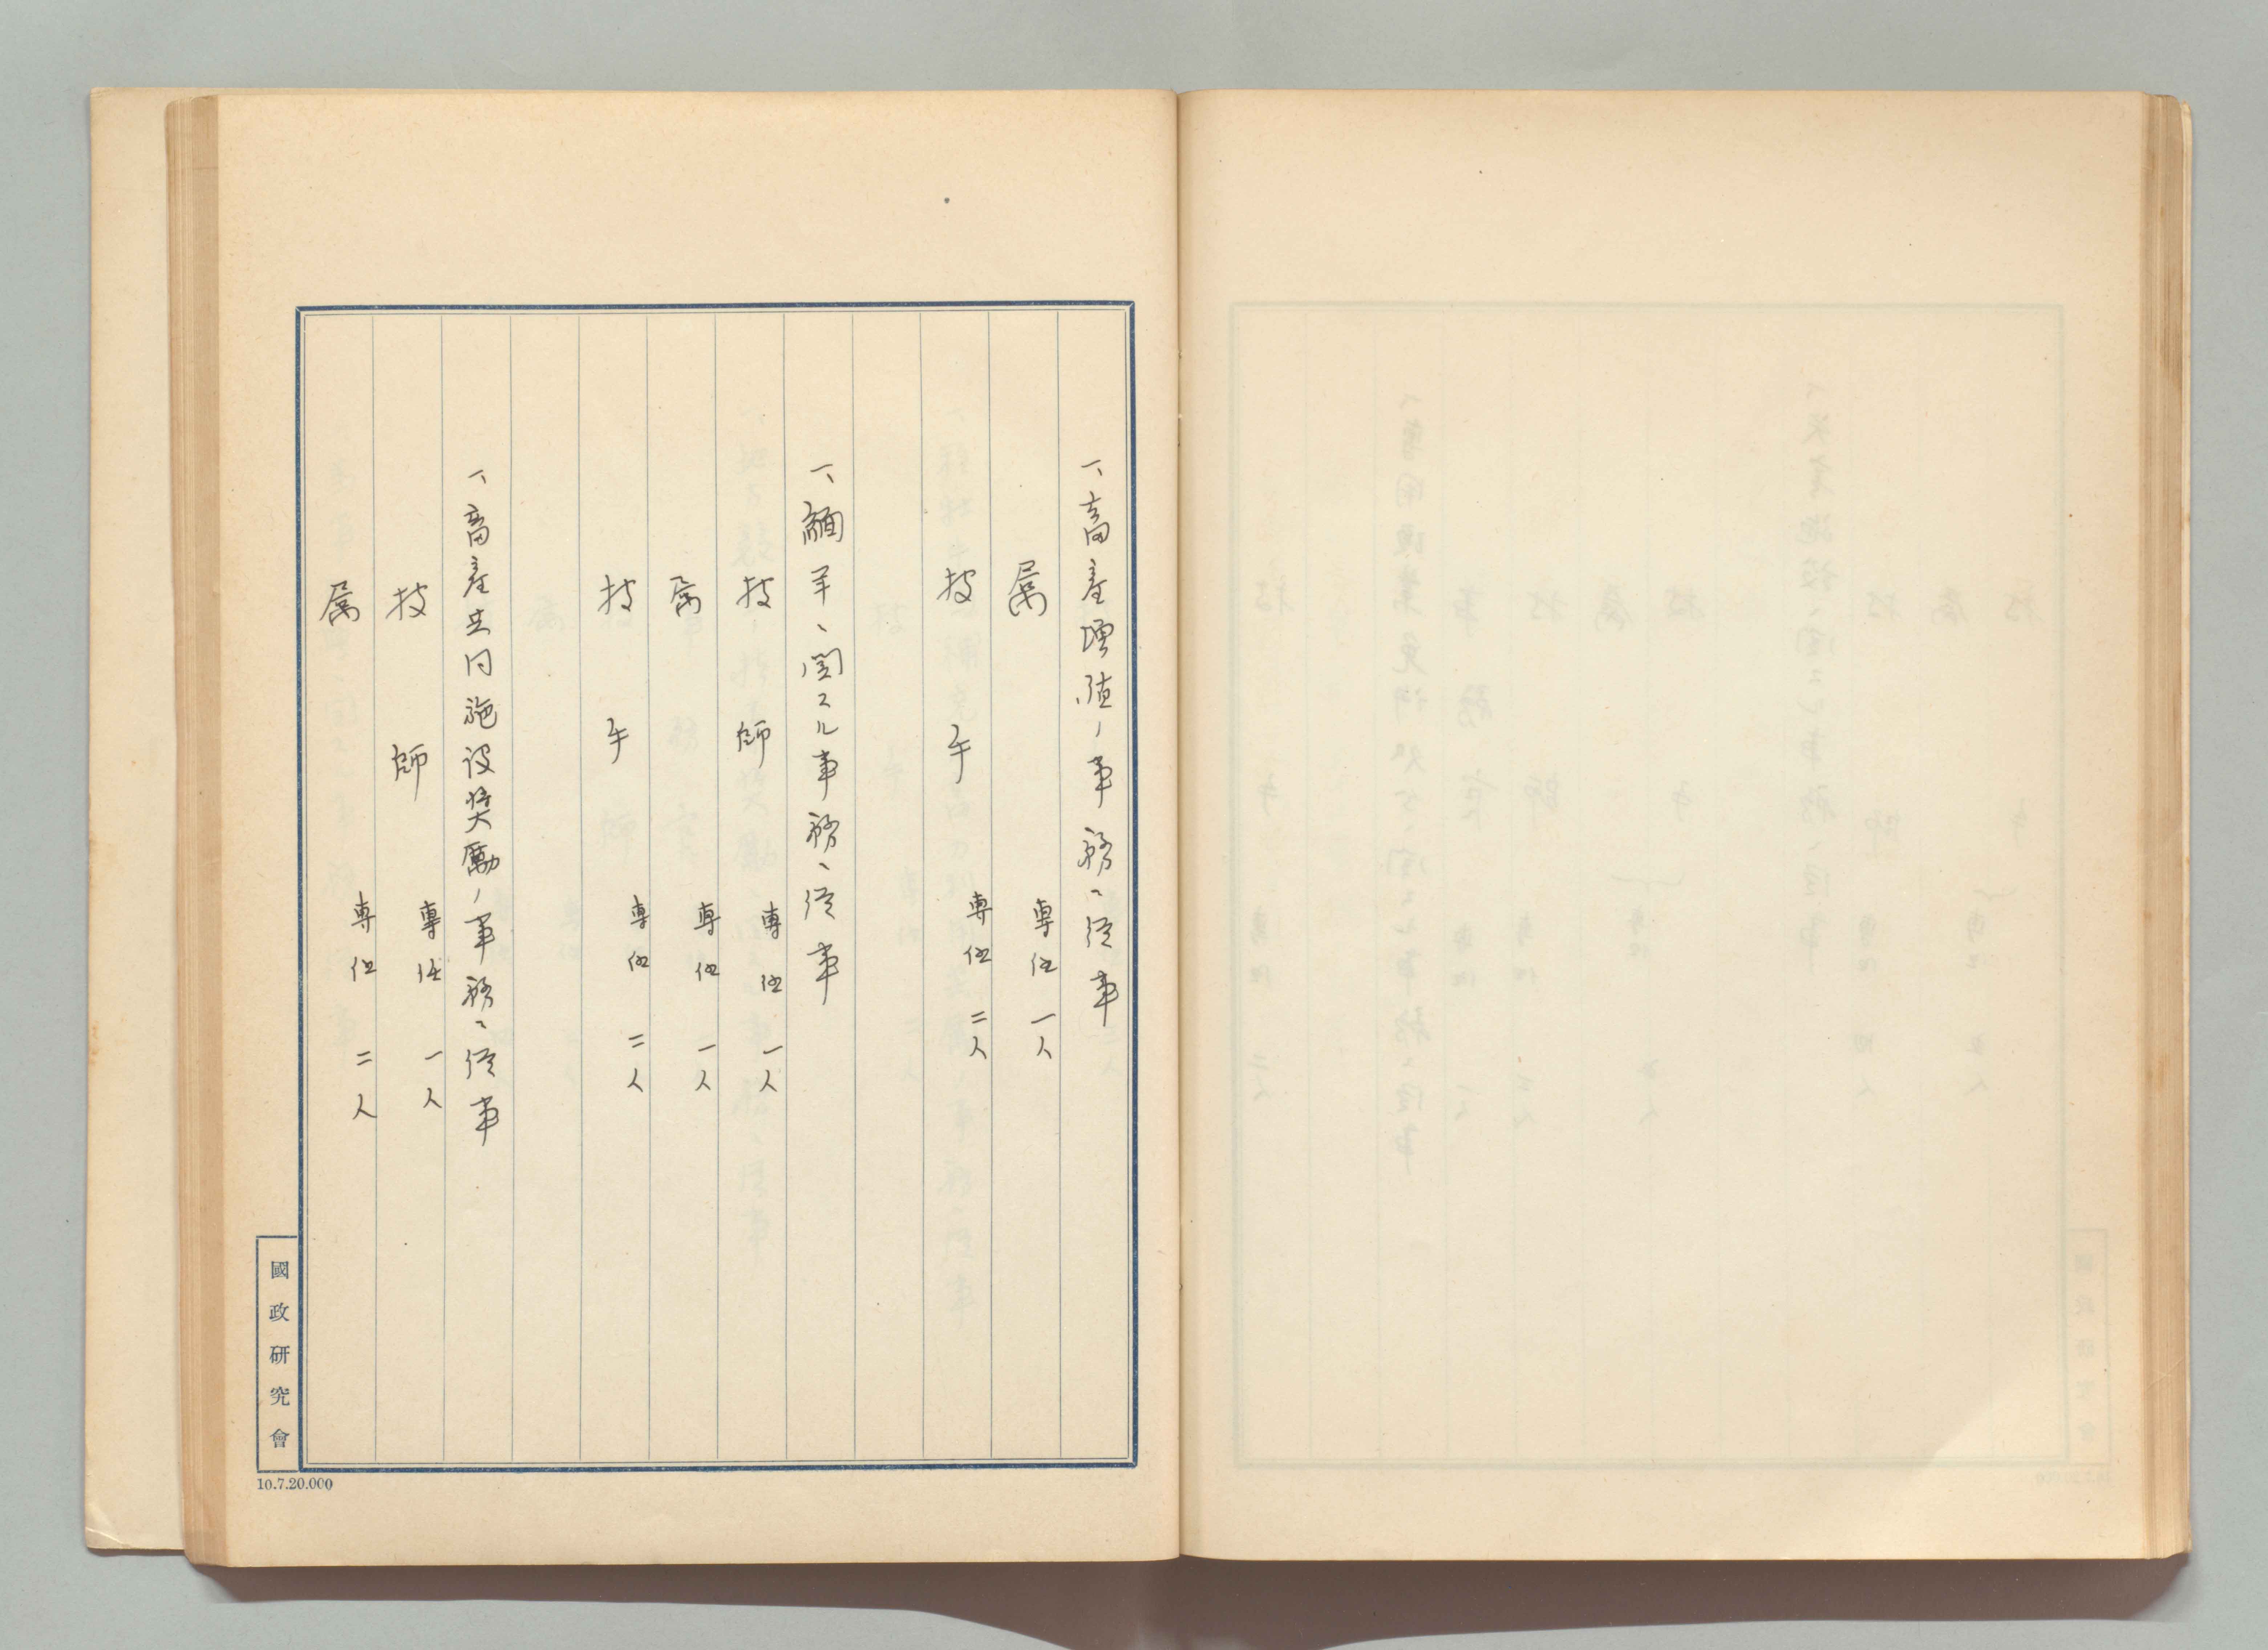 一、畜産増殖ノ事務ニ従事
属 専任 一人
技手 専任 二人
一、緬羊ニ関スル事務ニ従事
技師 専任 一人
属 専任 一人
技手 専任 二人
一、畜産共同施設奨励ノ事務ニ従事
技師 専任 一人
属 専任 二人
國政研究會
10.7.20.000